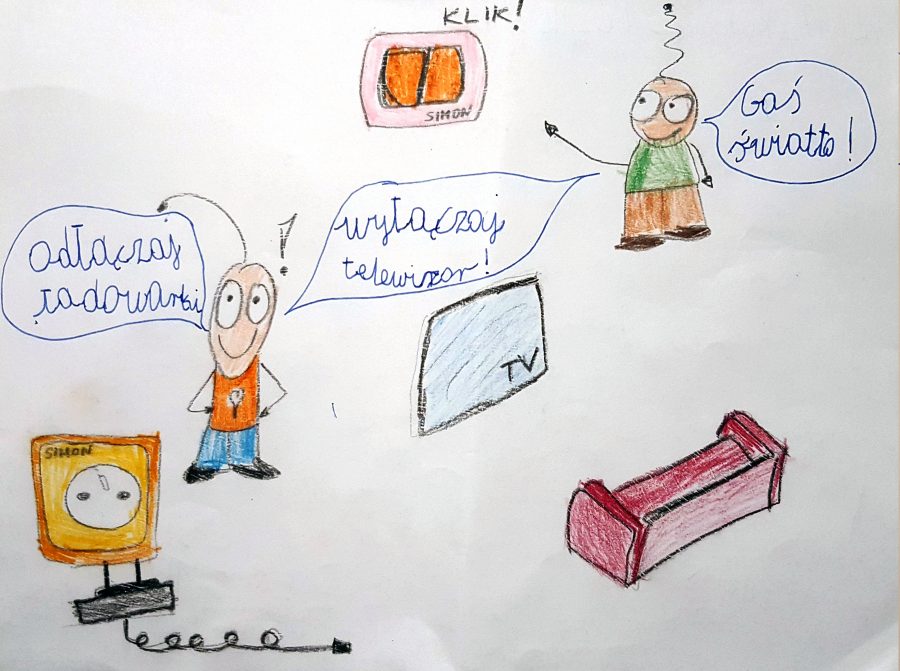 KLIK!
SIMON
Gaś
światło!
wyłączaj
telewizor!
odłączaj
ładowarki
!
TV
SIMON